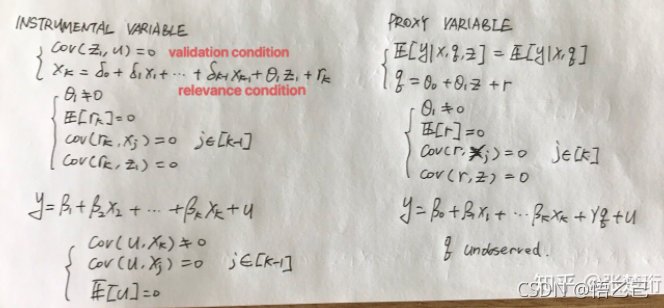 INSTRUMENTAL VARIABLE
Cov(z₁,u)=0 validation condition
xₖ = δ₀ + δ₁x₁ + ⋯ + δₖ₋₁xₖ₋₁ + θ₁z₁ + rₖ
relevance condition
θ₁≠0
𝔼[rₖ]=0
cov(rₖ,xⱼ)=0 j∈[k-1]
cov(rₖ,z₁)=0
y=β₁+β₂x₂ + ⋯ +βₖxₖ+u
Cov(u,xₖ)≠0
Cov(u,xⱼ)=0 j∈[k-1]
𝔼[u]=0
PROXY VARIABLE
𝔼[y|x,q,z] = 𝔼[y|x,q]
q = θ₀ + θ₁z + r
θ₁≠0
𝔼[r]=0
cov(r,xⱼ)=0 j∈[k]
cov(r,z)=0
y=β₀+β₁x₁+ ⋯ βₖxₖ+γq+u
q unobserved.
知乎 @张楚珩
CSDN @悟乙己